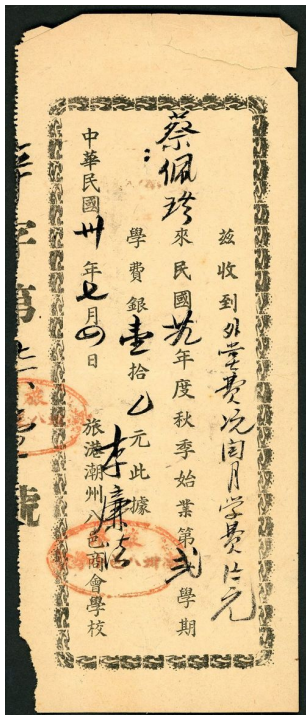 茲收到外堂費 閏月学費 元
蔡佩
來民國廿九年度秋季始業第弍學期
學費銀壹拾乙元此據
中華民國卅年七月四日
旅港潮州八邑商會學校
李廉
字第 號